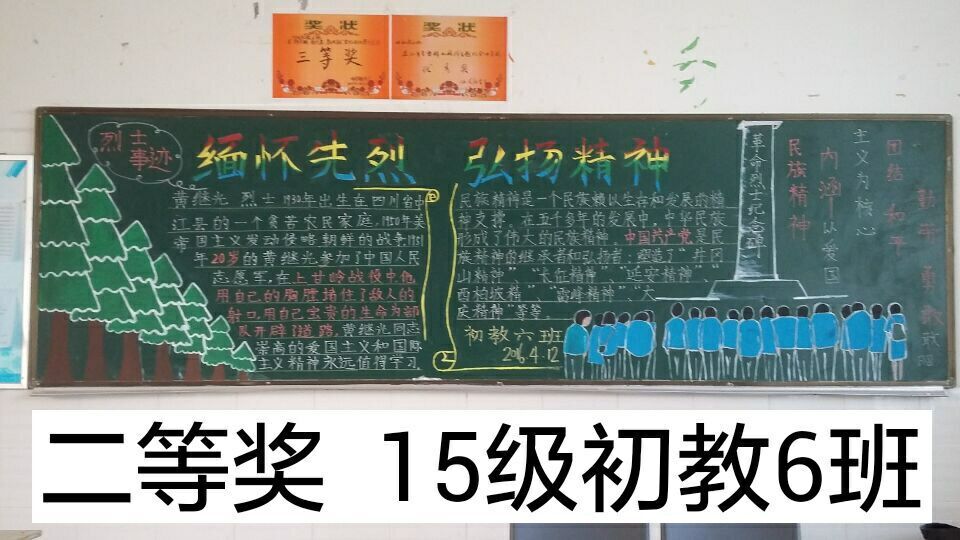 奖状
三等奖
奖状
优秀奖
烈士
事迹
缅怀先烈 弘扬精神
黄继光 烈士1930年出生在四川省中
江县的一个贫苦农民家庭,1950年美
帝国主义发动侵略朝鲜的战争1951
年20岁的黄继光参加了中国人民
志愿军,在上甘岭战役中他
用自己的胸膛堵住了敌人的
射口,用自己宝贵的生命为部
队开辟了道路,黄继光同志
崇高的爱国主义和国际
主义精神永远值得学习
民族精神是一个民族赖以生存和发展的精
神支撑。在五千多年的发展中,中华民族
形成了伟大的民族精神。中国共产党是民
族精神的继承者和弘扬者;塑造了"井冈
山精神""长征精神""延安精神""
西柏坡精"、"雷峰精神"、"大
庆精神"等等。
初教六班
2016.4.12
革命烈士纪念碑
民族精神
内涵——以爱国
主义为核心
团结和平
勤劳勇敢
二等奖 15级初教6班